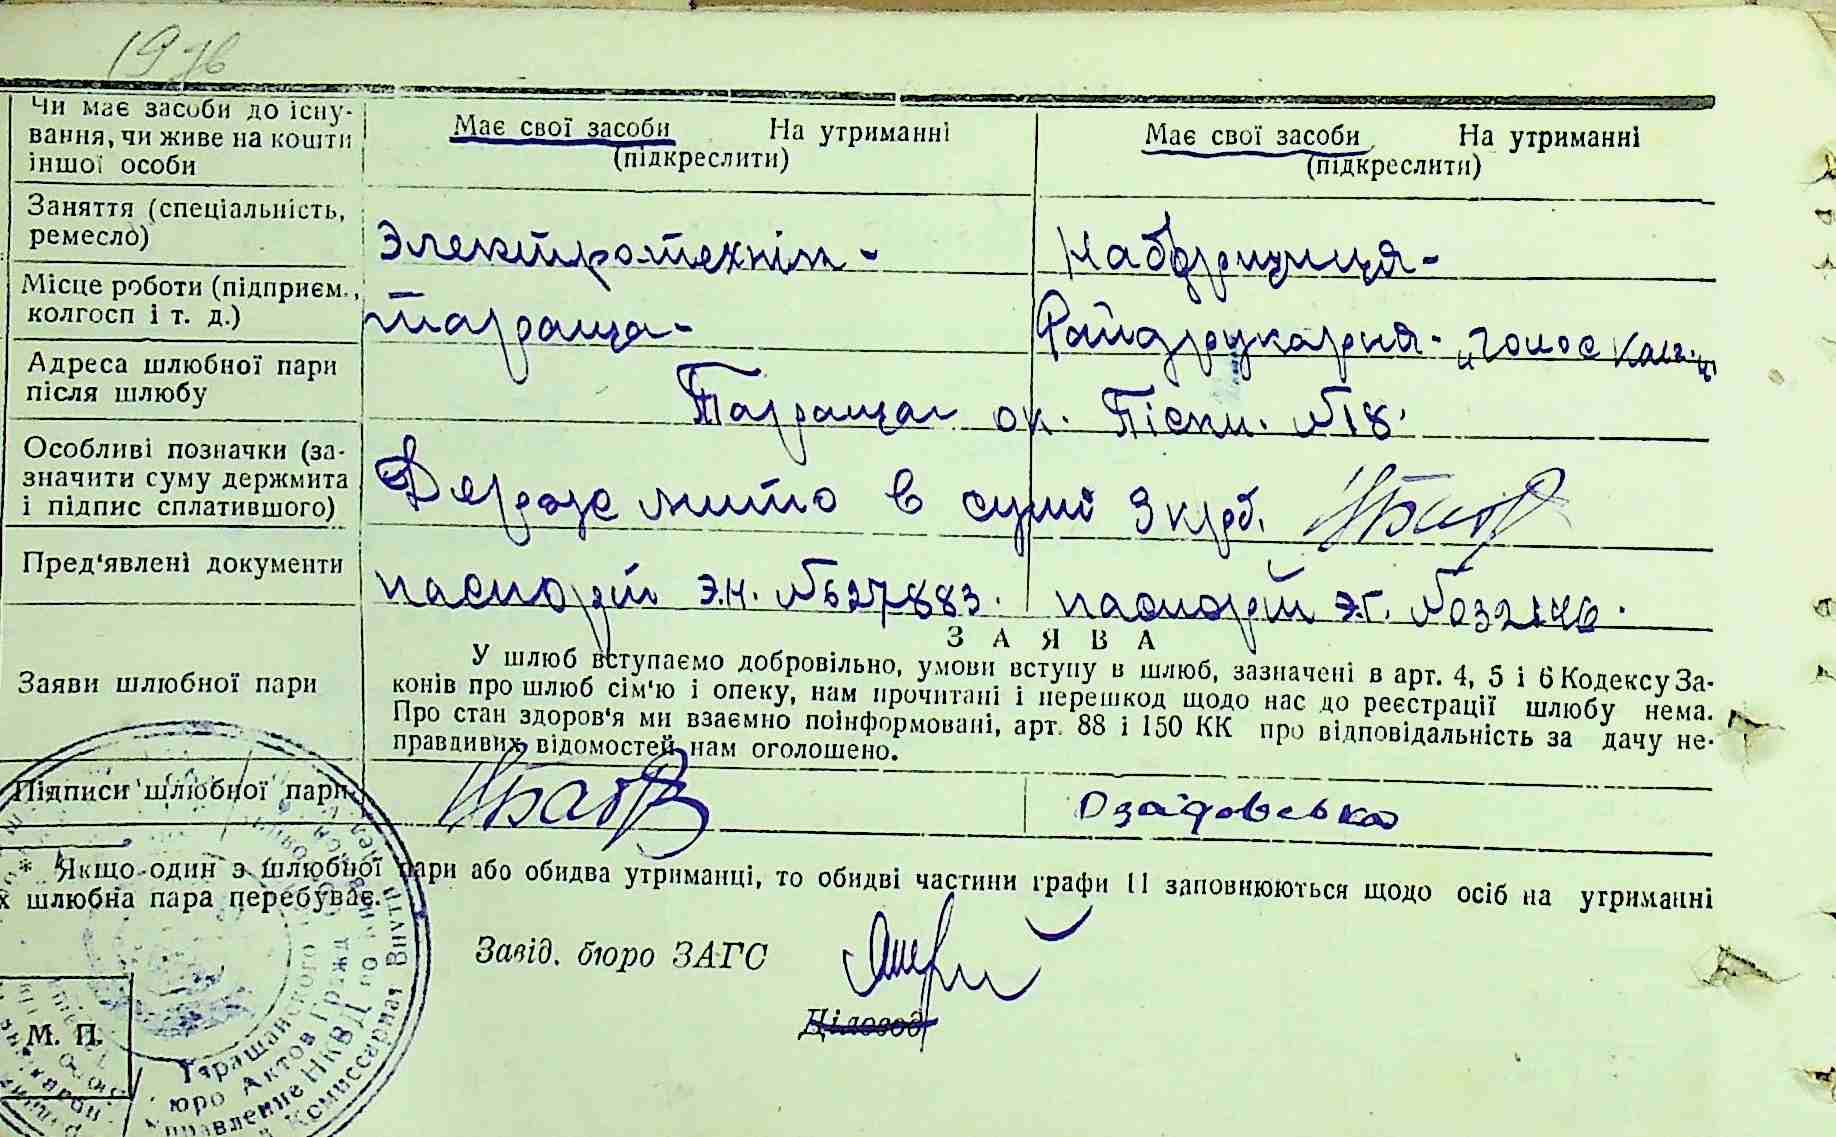 Чи має засоби до існу-
вання, чи живе на кошти
іншої особи
Має свої засоби На утриманні
(підкреслити)
Має свої засоби На утриманні
(підкреслити)
Заняття (спеціальність,
ремесло)
Электротехнік-
Наборщиця-
Місце роботи (підприєм.,
колгосп і т. д.)
Тараща-
Райдрукарня- „Голос Колг."
Адреса шлюбної пари
після шлюбу
Тараща ок. Піски. №18.
Особливі позначки (за-
значити суму держмита
і підпис сплатившого)
Держ мито в сумі 3 крб.
Пред'явлені документи
паспорт Э.Н. №627883.
паспорт Э.Г. №032146.
Заяви шлюбної пари
ЗАЯВА
У шлюб вступаємо добровільно, умови вступу в шлюб, зазначені в арт. 4, 5 і 6 Кодексу За-
конів про шлюб сім'ю і опеку, нам прочитані і перешкод щодо нас до реєстрації шлюбу нема.
Про стан здоров'я ми взаємно поінформовані, арт. 88 і 150 КК про відповідальність за дачу не-
правдивих відомостей нам оголошено.
Підписи шлюбної пари
* Якщо один з шлюбної пари або обидва утриманці, то обидві частини графи 11 заповнюються щодо осіб на утриманні
х шлюбна пара перебуває.
Завід. бюро ЗАГС
Діловод
М. П.
Таращанского
юро Актов Гражд
правление НКВД
Комиссариат Внутр